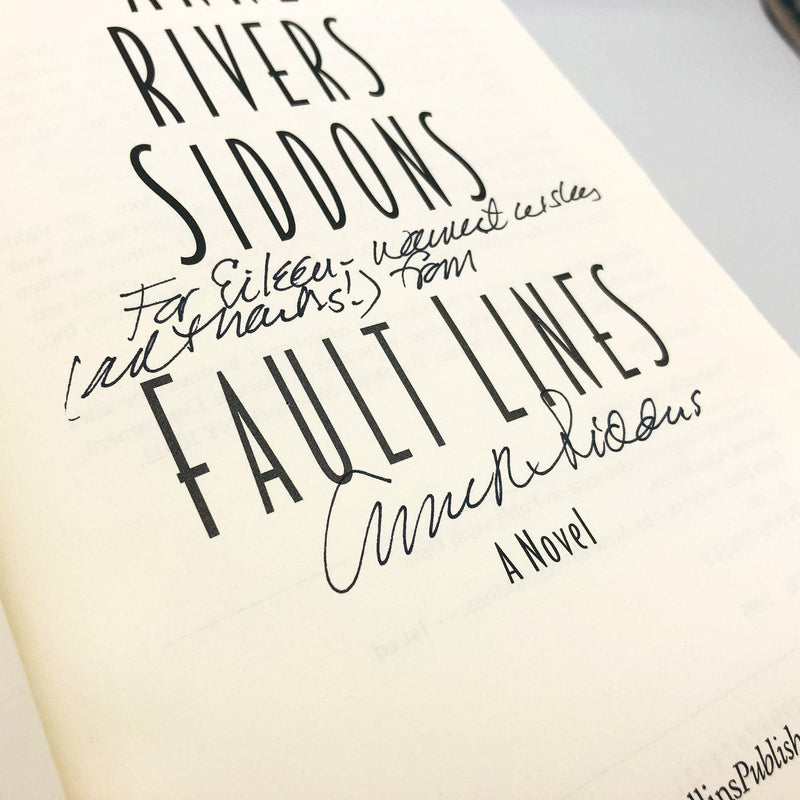 RIVERS
SIDDONS
For Eileen - warmest wishes
(and thanks!) from
FAULT LINES
Anne R Siddons
A Novel
llinsPublish